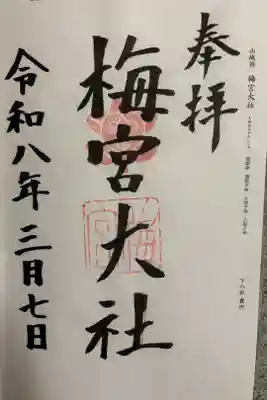 山城國 梅宮大社
奉拝
梅宮大社
令和八年三月七日